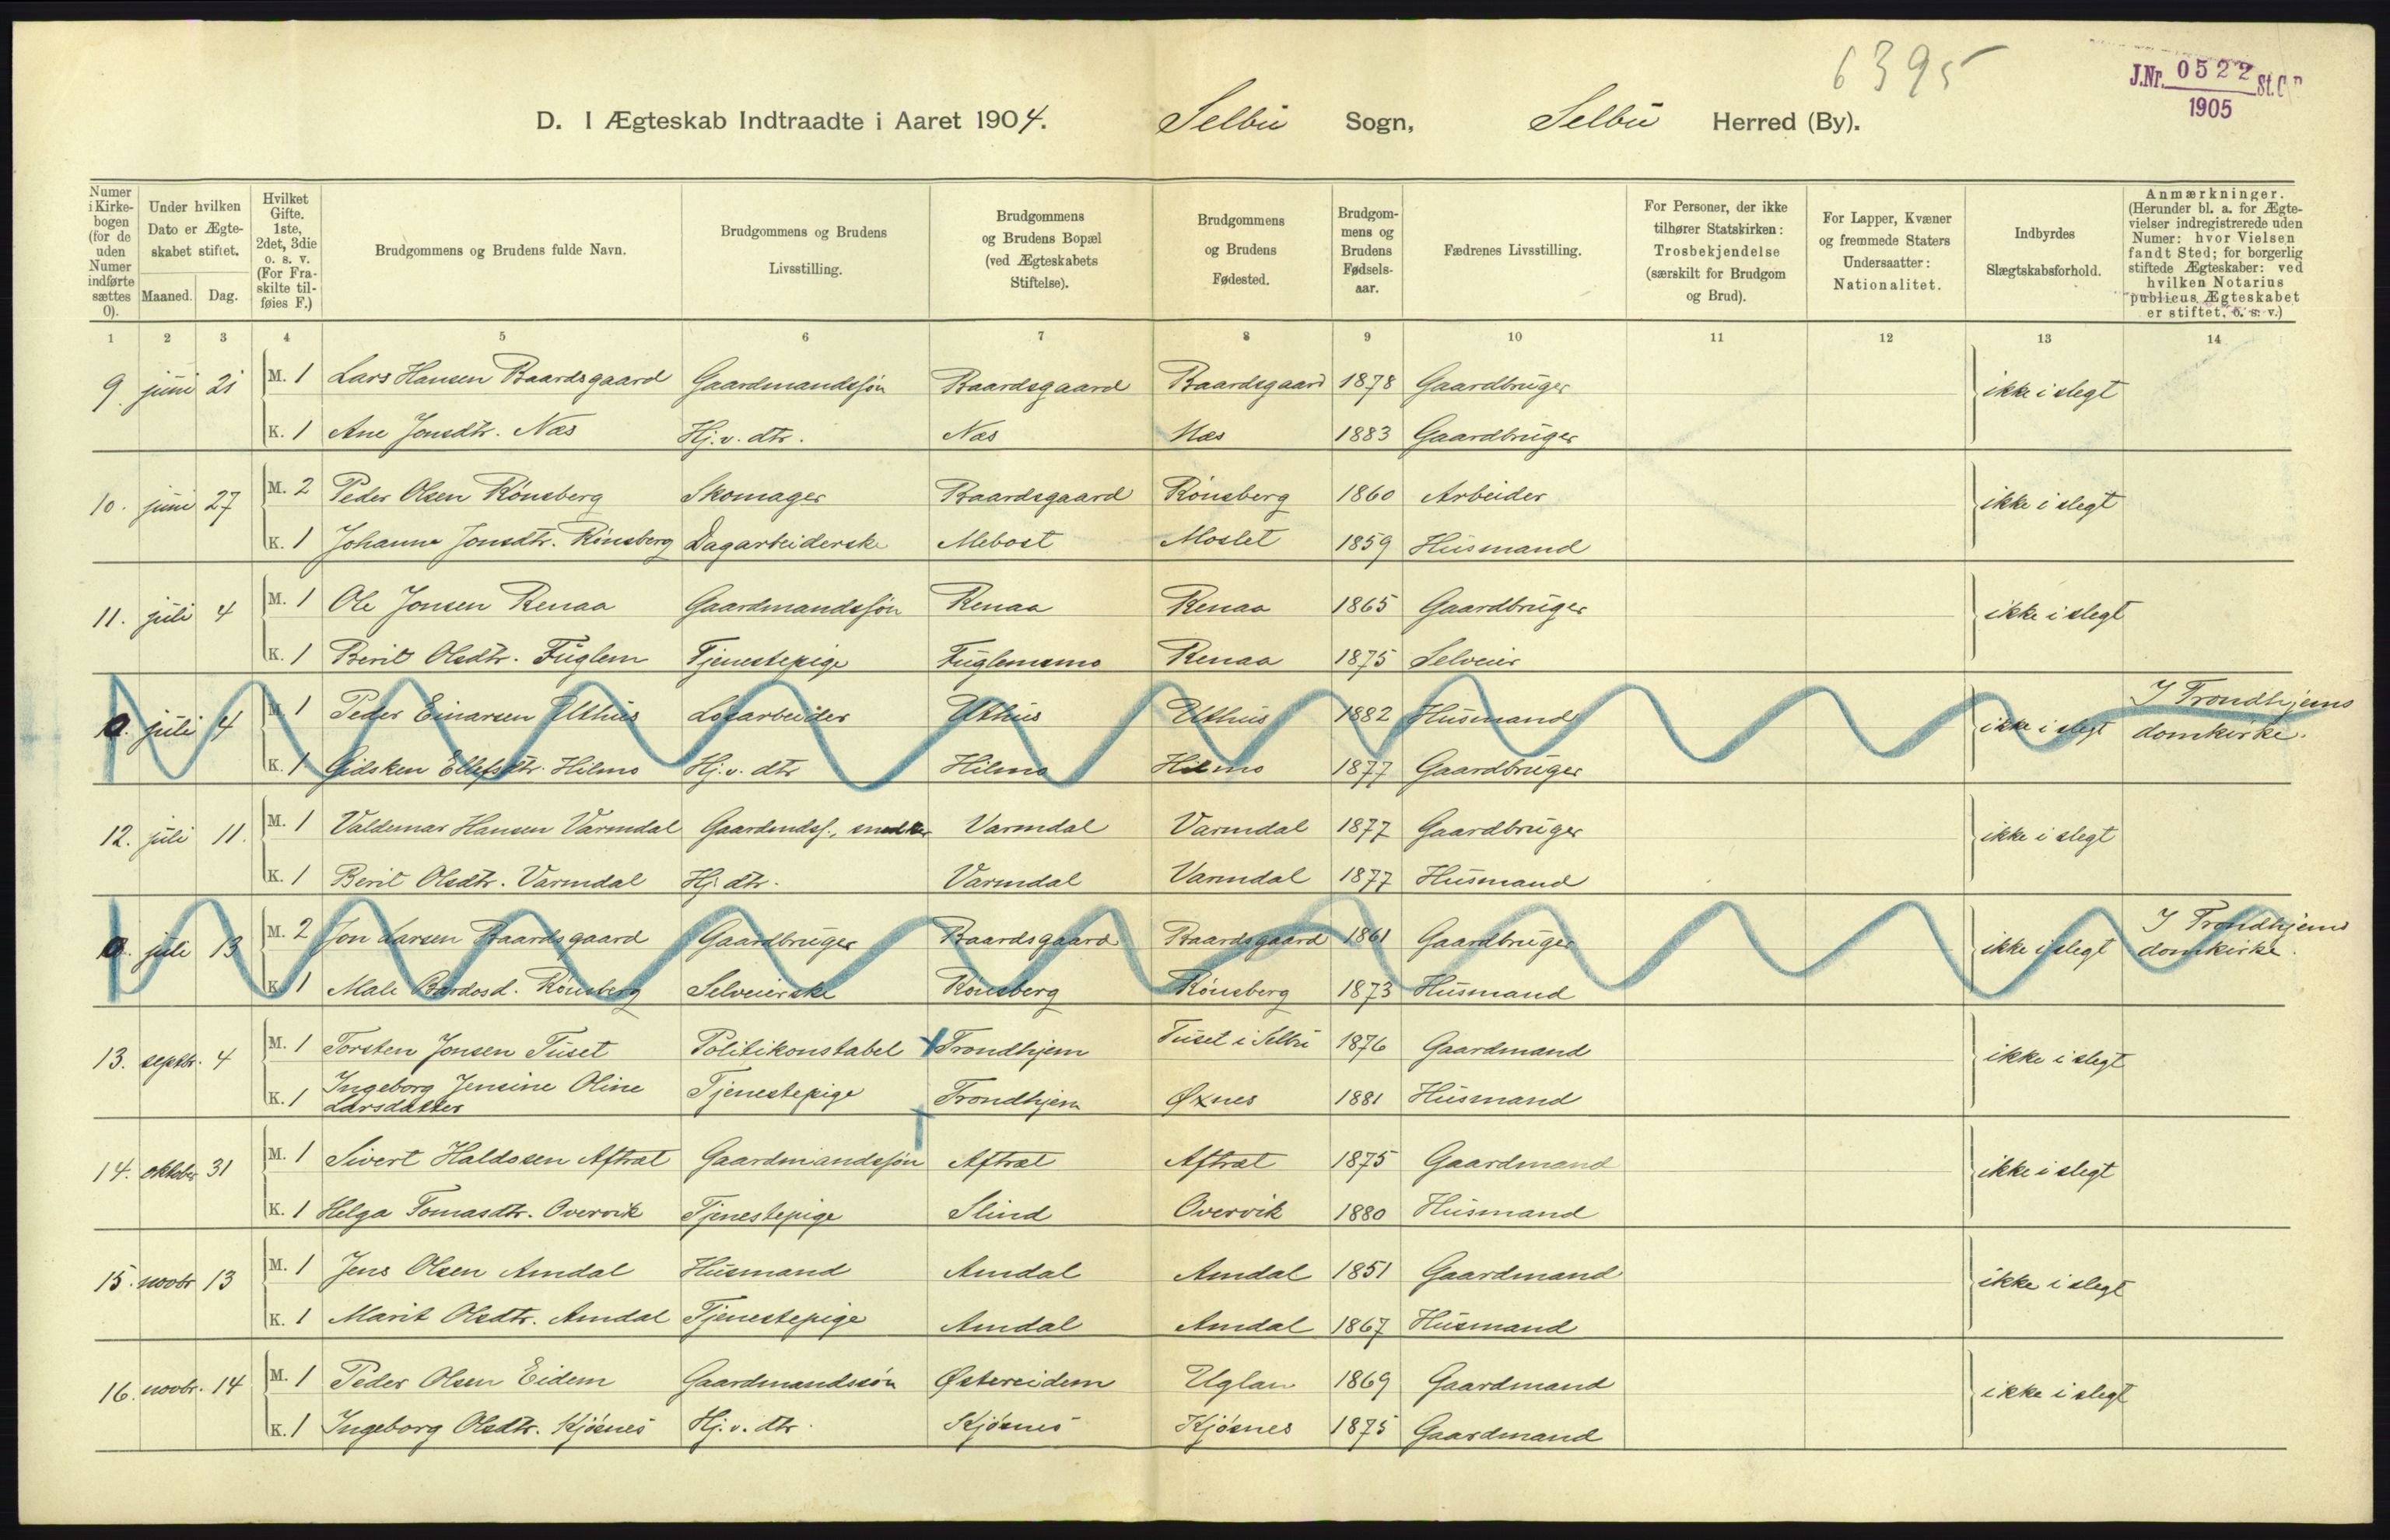 6395
J.Nr. 0522 St.C.B.
1905
D. I Ægteskab Indtraadte i Aaret 1904. Selbu Sogn, Selbu Herred (By).
Numer i Kirkebogen (for de uden Numer indførte sættes 0).
Under hvilken Dato er Ægteskabet stiftet.
Maaned. Dag.
Hvilket Gifte. 1ste, 2det, 3die o. s. v. (For Fraskilte tilføies F.)
Brudgommens og Brudens fulde Navn.
Brudgommens og Brudens Livsstilling.
Brudgommens og Brudens Bopæl (ved Ægteskabets Stiftelse).
Brudgommens og Brudens Fødested.
Brudgommens og Brudens Fødselsaar.
Fædrenes Livsstilling.
For Personer, der ikke tilhører Statskirken: Trosbekjendelse (særskilt for Brudgom og Brud).
For Lapper, Kvæner og fremmede Staters Undersaatter: Nationalitet.
Indbyrdes Slægtskabsforhold.
Anmærkninger. (Herunder bl. a. for Ægtevielser indregistrerede uden Numer: hvor Vielsen fandt Sted; for borgerlig stiftede Ægteskaber: ved hvilken Notarius publicus Ægteskabet er stiftet, o. s. v.)
1 2 3 4 5 6 7 8 9 10 11 12 13 14
9. juni 21 M. 1 Lars Hansen Baardsgaard Gaardmandssøn Baardsgaard Baardsgaard 1878 Gaardbruger ikke i slegt
K. 1 Ane Jonsdtr. Næs Hj.v. dtr. Næs Næs 1883 Gaardbruger
10. juni 27 M. 2 Peder Olsen Rönsberg Skomager Baardsgaard Rönsberg 1860 Arbeider ikke i slegt
K. 1 Johanna Jonsdtr. Rönsberg Dagarbeiderske Mebost Moslet 1859 Husmand
11. juli 4 M. 1 Ole Jonsen Renaa Gaardmandssøn Renaa Renaa 1865 Gaardbruger ikke i slegt
K. 1 Berit Olsdtr. Fuglem Tjenestepige Fuglemsmo Renaa 1875 Selveier
0. juli 4 M. 1 Peder Einarsen Uthus Losarbeider Uthus Uthus 1882 Husmand ikke i slegt I Trondhjems domkirke.
K. 1 Gidsken Ellefsdtr. Hilmo Hj.v. dtr Hilmo Hilmo 1877 Gaardbruger
12. juli 11. M. 1 Valdemar Hansen Varmdal Gaardmdss., snedker Varmdal Varmdal 1877 Gaardbruger ikke i slegt
K. 1 Berit Olsdtr. Varmdal Hj. dtr. Varmdal Varmdal 1877 Husmand
0. juli 13 M. 2 Jon Larsen Baardsgaard Gaardbruger Baardsgaard Baardsgaard 1861 Gaardbruger ikke i slegt I Trondhjems domkirke.
K. 1 Mali Bardosd. Rönsberg Selveierske Rönsberg Rönsberg 1873 Husmand
13. septbr. 4 M. 1 Torsten Jonsen Tuset Politikonstabel Trondhjem Tuset i Selbu 1876 Gaardmand ikke i slegt
K. 1 Ingeborg Jensine Oline Larsdatter Tjenestepige Trondhjem Øxnes 1881 Husmand
14. oktober 31 M. 1 Sivert Haldosen Aftræt Gaardmandssøn Aftræt Aftræt 1875 Gaardmand ikke i slegt
K. 1 Helga Tomasdtr. Overvik Tjenestepige Slind Overvik 1880 Husmand
15. novbr 13 M. 1 Jens Olsen Amdal Husmand Amdal Amdal 1851 Gaardmand ikke i slegt
K. 1 Marit Olsdtr. Amdal Tjenestepige Amdal Amdal 1867 Husmand
16. novbr. 14 M. 1 Peder Olsen Eidem Gaardmandssön Østereidem Uglan 1869 Gaardmand ikke i slegt
K. 1 Ingeborg Olsdtr. Kjösnes Hj.v. dtr. Kjösnes Kjösnes 1875 Gaardmand